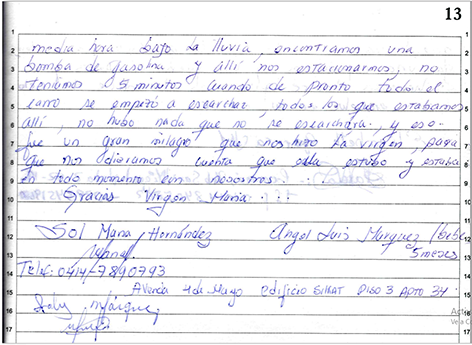 13
media hora bajo la lluvia, encontramos una
bomba de gasolina y allí nos estacionarmos, no
teníamos 5 minutos cuando de pronto todo el
carro se empezó a escarchar, todos los que estabamos
allí, no hubo nada que no se escarchara, y eso
fue un gran milagro que nos hizo la Virgen, para
que nos dieramos cuenta que ella estubo y estaba
En todo momento con nosotros.
Gracias Virgen Maria...
Sol Maria Hernández Angel Luis Marquez (bebe
5 meses
Telef: 0414-7890793
Avenida 4 de Mayo edificio SILKAT Piso 3 Apto 34.
Márquez